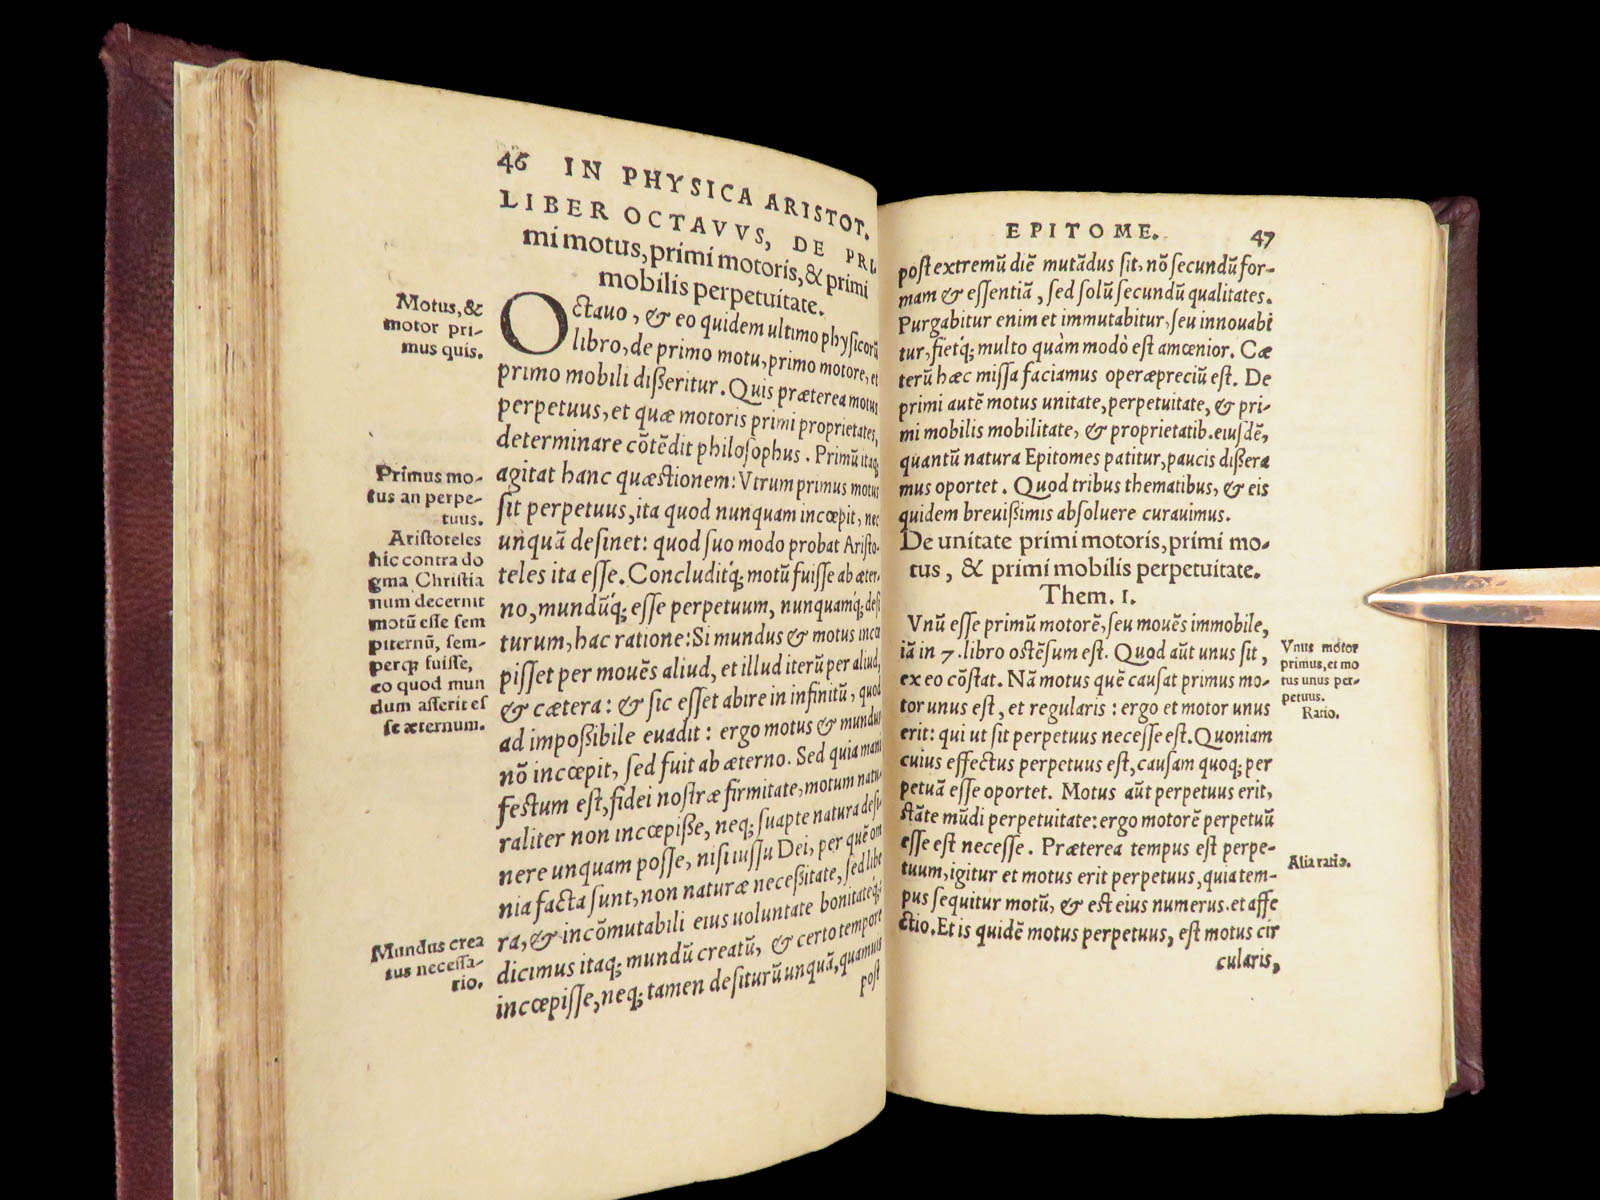 46 IN PHYSICA ARISTOT.
LIBER OCTAVVS, DE PRI-
mi motus, primi motoris, & primi
mobilis perpetuitate.
Motus, &
motor pri-
mus quis.
Octauo, & eo quidem ultimo physicorũ
libro, de primo motu, primo motore, et
primo mobili disseritur. Quis præterea motus
perpetuus, et quæ motoris primi proprietates,
determinare cõtẽdit philosophus. Primũ itaq;
agitat hanc quæstionem: Vtrum primus motus
sit perpetuus, ita quod nunquam incœpit, nec
unquã desinet: quod suo modo probat Aristo-
teles ita esse. Concludit'q; motũ fuisse ab æter-
no, mundũ'q; esse perpetuum, nunquam'q; desi
turum, hac ratione: Si mundus & motus incœ
pisset per mouẽs aliud, et illud iterũ per aliud,
& cætera: & sic esset abire in infinitũ, quod
ad impossibile euadit: ergo motus & mundus
nõ incœpit, sed fuit ab æterno. Sed quia mani
festum est, fidei nostræ firmitate, motum natu-
raliter non incœpisse, neq; suapte natura desi-
nere unquam posse, nisi iussu Dei, per quẽ om
nia facta sunt, non naturæ necessitate, sed libe
ra, & incõmutabili eius uoluntate bonitate'q;:
dicimus itaq; mundũ creatũ, & certo tempore
incœpisse, neq; tamen desiturũ unquã, quamuis
post
Primus mo-
tus an perpe-
tuus.
Aristoteles
hic contra do
gma Christia
num decernit
motũ esse sem
piternũ, sem-
perq; fuisse,
eo quod mun
dum asserit es
se æternum.
Mundus crea
tus necessa-
rio.
EPITOME. 47
post extremũ diẽ mutãdus sit, nõ secundũ for-
mam & essentiã, sed solũ secundũ qualitates.
Purgabitur enim et immutabitur, seu innouabi
tur, fiet'q; multo quàm modò est amœnior. Cæ
terũ hæc missa faciamus operæpreciũ est. De
primi autẽ motus unitate, perpetuitate, & pri-
mi mobilis mobilitate, & proprietatib. eiusdẽ,
quantũ natura Epitomes patitur, paucis dissera
mus oportet. Quod tribus thematibus, & eis
quidem breuissimis absoluere curauimus.
De unitate primi motoris, primi mo-
tus, & primi mobilis perpetuitate.
Them. 1.
Vnũ esse primũ motorẽ, seu mouẽs immobile,
iã in 7. libro ostẽsum est. Quod aũt unus sit,
ex eo cõstat. Nã motus quẽ causat primus mo-
tor unus est, et regularis: ergo et motor unus
erit: qui ut sit perpetuus necesse est. Quoniam
cuius effectus perpetuus est, causam quoq; per
petuã esse oportet. Motus aũt perpetuus erit,
stãte mũdi perpetuitate: ergo motorẽ perpetuũ
esse est necesse. Præterea tempus est perpe-
tuum, igitur et motus erit perpetuus, quia tem-
pus sequitur motũ, & est eius numerus. et affe
ctio. Et is quidẽ motus perpetuus, est motus cir
cularis,
Vnus motor
primus, et mo
tus unus per-
petuus.
Ratio.
Alia ratio.